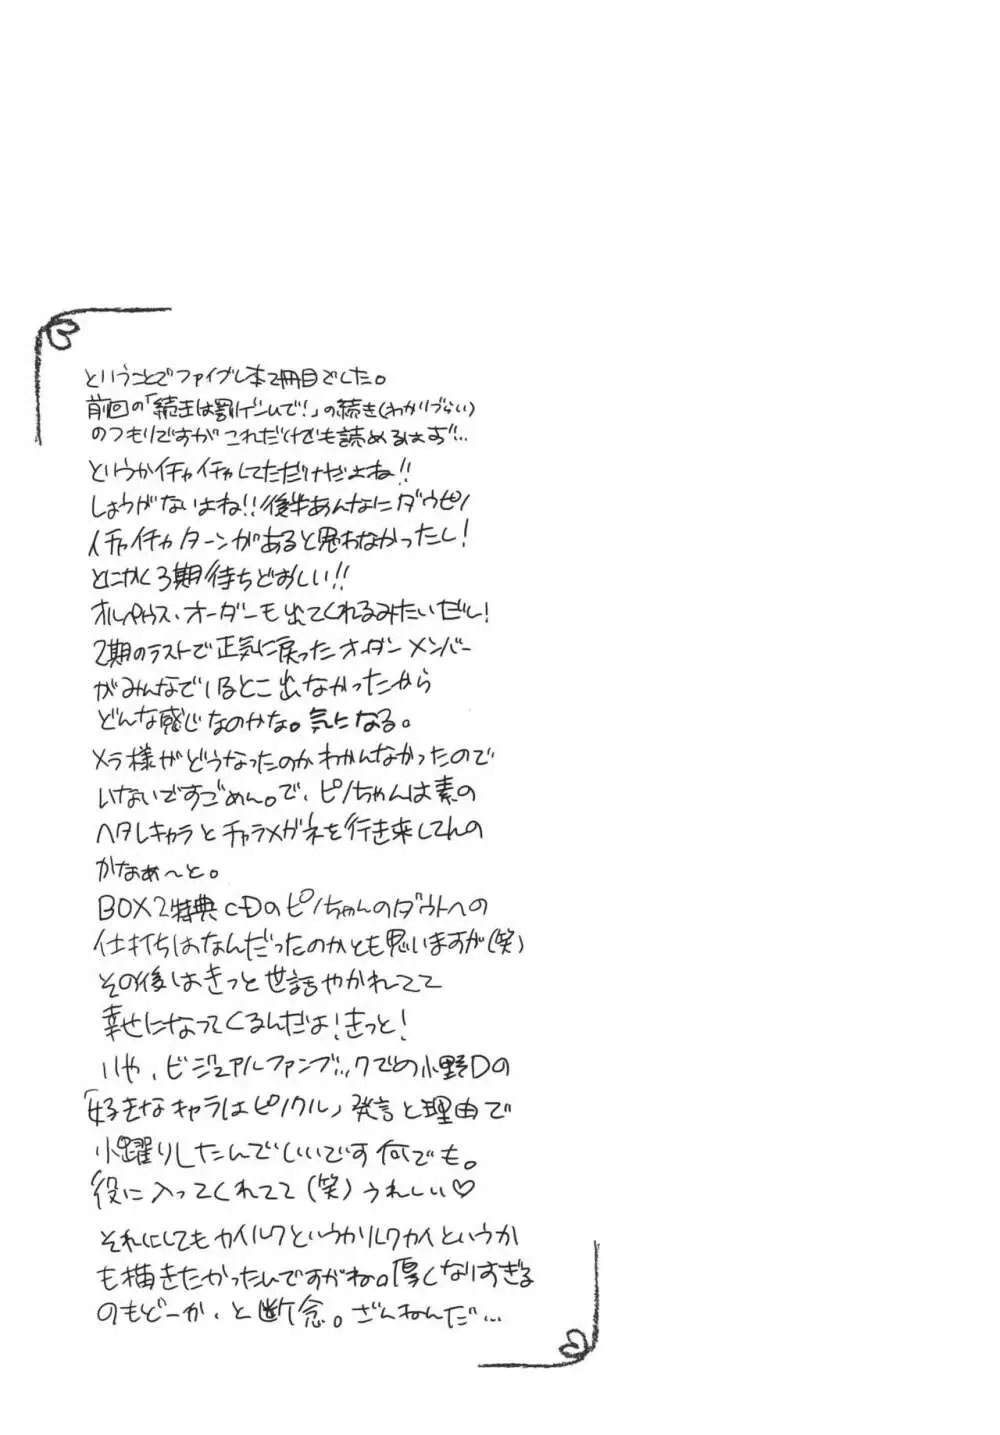 ということでファイブレ本2冊目でした。
前回の「続・王は罰ゲームで!」の続き(わかりづらい)
のつもりですが これだけでも読めるはず…
というかイチャイチャしてただけだよね!!
しょうがないよね!!後半あんなにダウピノ
イチャイチャターンがあると思わなかったし!
とにかく3期待ちどおしい!!
オルペウス・オーダーも出てくれるみたいだし!
2期のラストで正気に戻ったオーダーメンバー
がみんなでいるとこ出なかったから
どんな感じなのかな。気になる。
メラ様がどうなったのかわかんなかったので
いないですごめん。で、ピノちゃんは素の
ヘタレキャラとチャラメガネを行き来してんの
かなぁ〜と。
BOX2特典CDのピノちゃんのダウトへの
仕打ちはなんだったのかとも思いますが(笑)
その後はきっと世話やかれてて
幸せになってくるんだよ!きっと!
いや、ビジュアルファンブックでの小野Dの
「好きなキャラはピノクル」発言と理由で
小躍りしたんでいいです何でも。
役に入ってくれてて(笑)うれしい♡
それにしてもカイルクというかルクカイというか
も描きたかったんですがね。厚くなりすぎる
のもどーか、と断念。ざんねんだ…